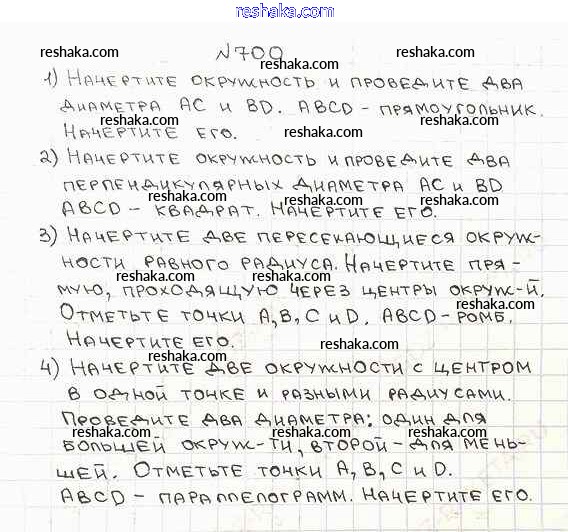 reshaka.com
reshaka.com
№700
reshaka.com reshaka.com
1) Начертите окружность и проведите два
reshaka.com reshaka.com
диаметра AC и BD. ABCD – прямоугольник.
Начертите его.
reshaka.com reshaka.com
2) Начертите окружность и проведите два
перпендикулярных диаметра AC и BD
reshaka.com reshaka.com
ABCD – квадрат. Начертите его.
3) Начертите две пересекающиеся окруж-
reshaka.com
ности равного радиуса. Начертите пря-
reshaka.com reshaka.com
мую, проходящую через центры окруж-й.
reshaka.com
Отметьте точки A, B, C и D. ABCD – ромб.
Начертите его.
reshaka.com reshaka.com
4) Начертите две окружности с центром
в одной точке и разными радиусами.
reshaka.com reshaka.com
Проведите два диаметра: один для
reshaka.com reshaka.com
большей окруж-ти, второй – для мень-
шей. Отметьте точки A, B, C и D.
reshaka.com reshaka.com
ABCD – параллелограмм. Начертите его.
reshaka.com reshaka.com